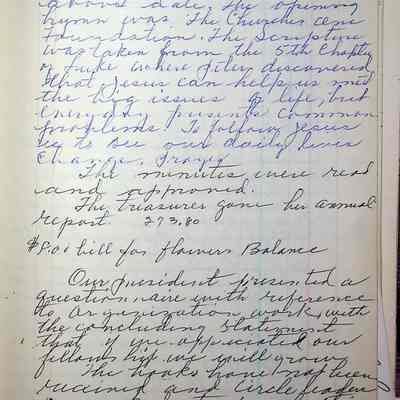 above date, The opening
hymn was, The Churches one
Foundation. The Scripture
was taken from the 5th Chapter
of Luke where Peter discovered
that Jesus can help us meet
the big issues of life, but
everyday persons common
problems. To follow Jesus
is to see our daily lives
Change. Prayer
The minutes were read
and approved.
The treasurer gave her annual
report. 273.80
$8.00 bill for flowers Balance
Our president presented a
questionaire with reference
to Organization work, with
the concluding statement
that if we appreciated our
fellowship we will grow
The books have been
received and Circle leaders